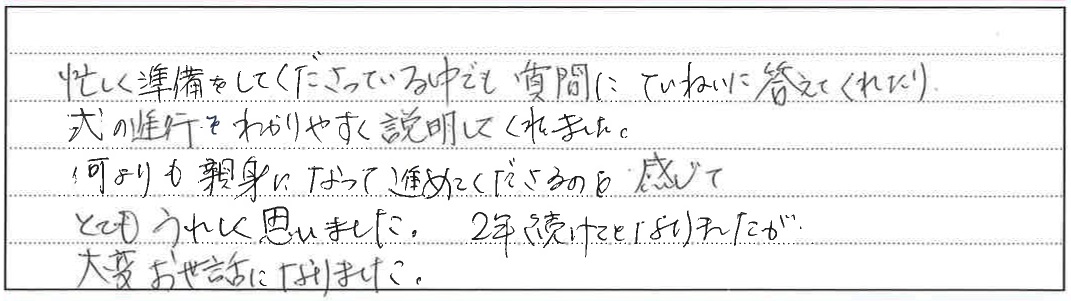 忙しく準備をしてくださっている中でも質問にていねいに答えてくれたり
式の進行をわかりやすく説明してくれました。
何よりも親身になって進めてくださるのを感じて
とてもうれしく思いました。2年続けてとなりましたが
大変お世話になりました。